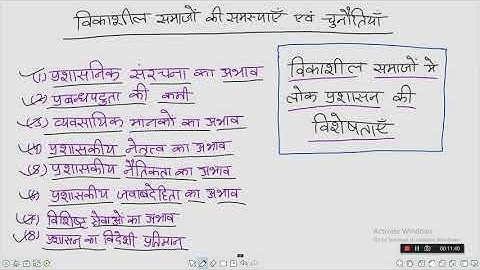 विकाशील समाजों की समस्याएँ एवं चुनौतियाँ
(1) प्रशासनिक संरचना का अभाव
(2) प्रबन्धपटुता की कमी
(3) व्यवसायिक मानकों का अभाव
(4) प्रशासकीय नेतृत्व का अभाव
(5) प्रशासकीय नैतिकता का अभाव
(6) प्रशासकीय जवाबदेहिता का अभाव
(7) विशिष्ट सेवाओं का अभाव
(8) प्रशासन का विदेशी प्रतिमान
विकाशील समाजों में
लोक प्रशासन की
विशेषताएँ
Activate Windows
00:11:40